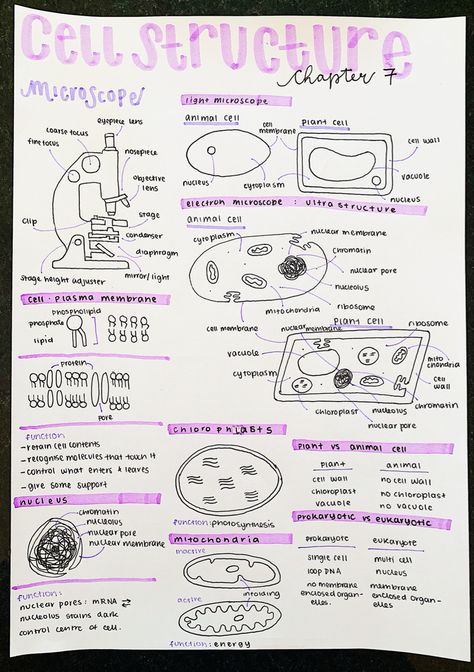 Cell Structure
Chapter 7
Microscope
eyepiece lens
coarse focus
fine focus
nosepiece
objective lens
clip
stage
condenser
diaphragm
stage height adjuster
mirror/light
light microscope
animal cell
cell membrane
plant cell
cell wall
vacuole
nucleus
cytoplasm
nucleus
electron microscope : ultrastructure
animal cell
cytoplasm
nuclear membrane
chromatin
nuclear pore
nucleolus
ribosome
mitochondria
cell membrane
nuclear membrane
plant cell
ribosome
vacuole
cytoplasm
mitochondria
cell wall
chromatin
chloroplast
nucleolus
nuclear pore
cell - plasma membrane
phospholipid
phosphate
lipid
protein
pore
function
- retain cell contents
- recognise molecules that touch it
- control what enters & leaves
- give some support
nucleus
chromatin
nucleolus
nuclear pore
nuclear membrane
function:
nuclear pores: mRNA ⇄
nucleolus stains dark
control centre of cell.
chloroplasts
function: photosynthesis
mitochondria
inactive
infolding
active
function: energy
plant vs animal cell
plant animal
cell wall no cell wall
chloroplast no chloroplast
vacuole no vacuole
prokaryotic vs eukaryotic
prokaryote eukaryote
single cell multi cell
loop DNA nucleus
no membrane membrane
enclosed organ- enclosed organ-
elles. elles